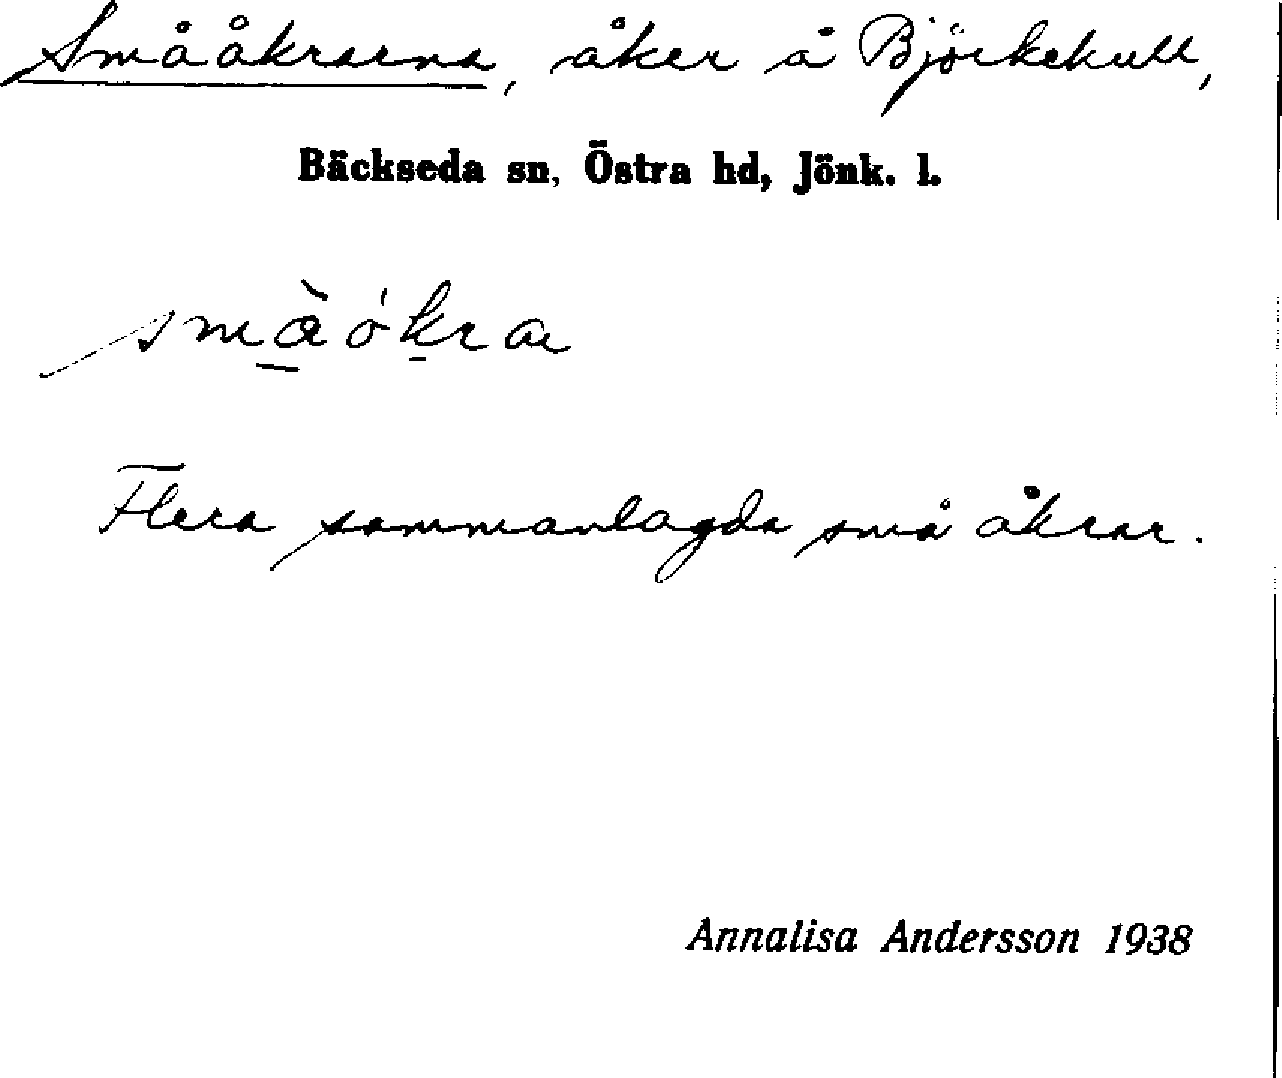 Småäkrarna, åker å Björkekull,
Bäckseda sn, Östra hd, Jönk. l.
Flera sammanlagda små åkrar.
Annalisa Andersson 1938